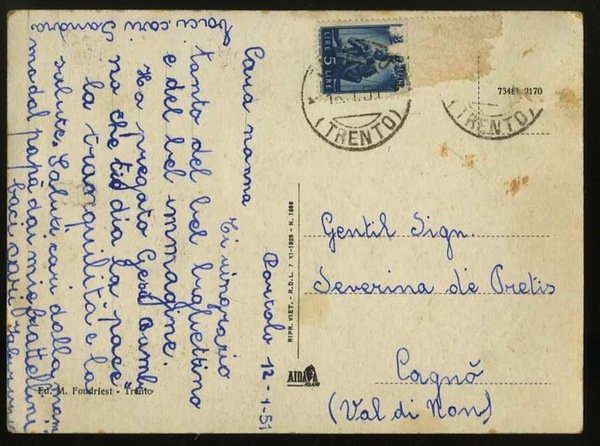 Bortolo 12-1-51
Cara nonna
Ti ringrazio
tanto del bel bigliettino
e del bel immagine.
Ho pregato Gesù Bamb
no che ti dia la pace
la tranquilità e la
salute. Saluti cari dalla
modal papà dai miei fratellini
baci cari
baci cari Sandra
LIRE 5 LIRE
51
(TRENTO)
(TRENTO)
73481 2170
Gentil Sign.
Severina de Pretis
Cagnò
(Val di Non)
RIPR. VIET. - R.D.L. 7 XI-1925 - N. 1950
Ed. M. Fondriest - Trento